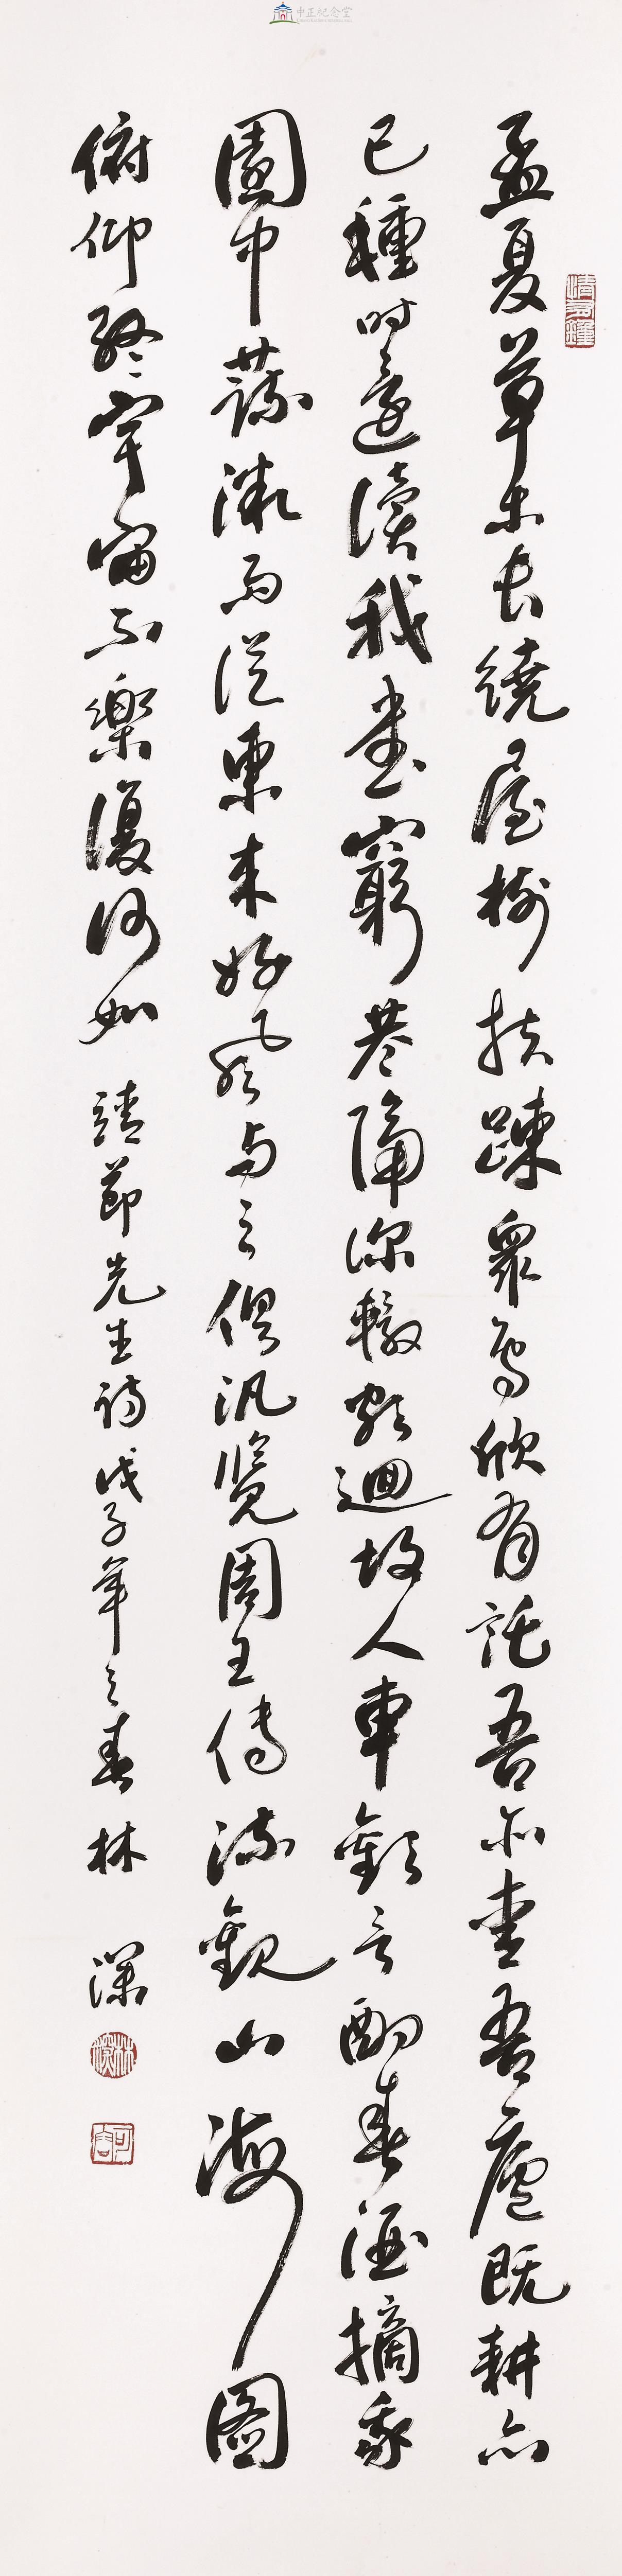 中正紀念堂
孟夏草木長繞屋樹扶踈眾鳥欣有託吾亦愛吾廬既耕亦
已種時還讀我書窮巷隔深轍頗迴故人車歡言酌春酒摘我
園中蔬微雨從東來好風與之俱汎覽周王傳流觀山海圖
俯仰終宇宙不樂復何如 靖節先生詩戊子年之春林 濮